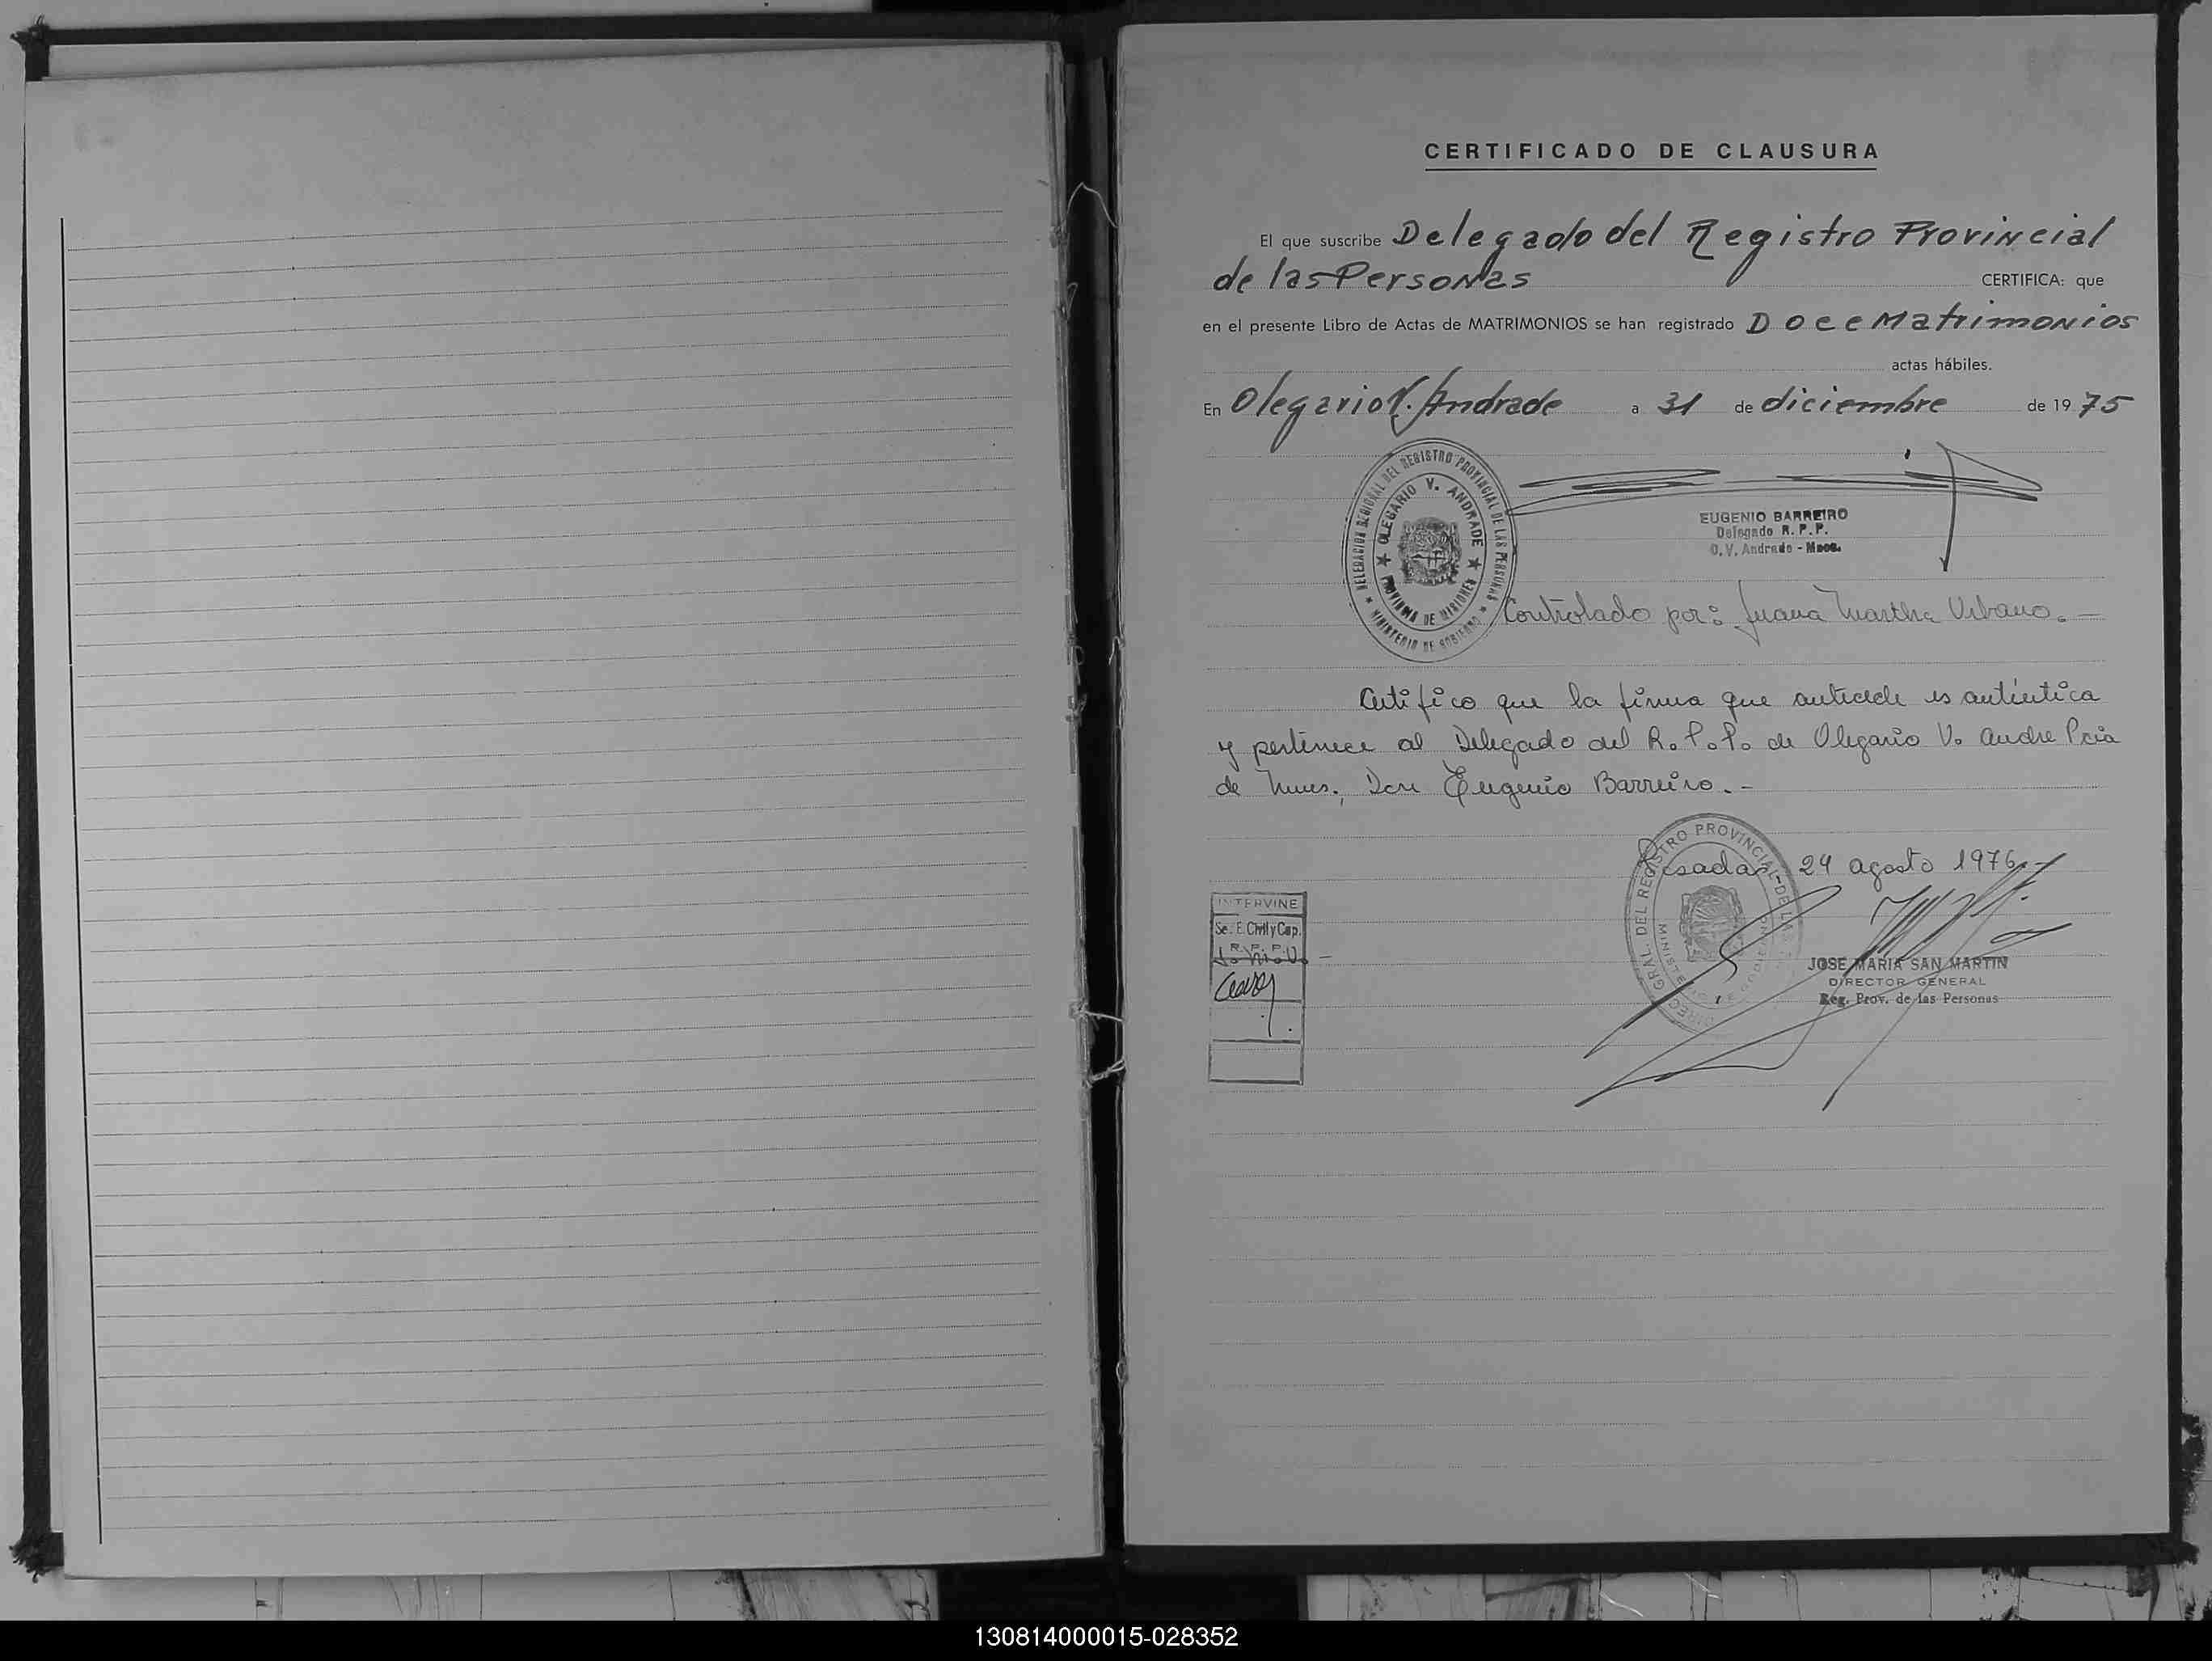 CERTIFICADO DE CLAUSURA
El que suscribe Delegado del Registro Provincial
de las Personas CERTIFICA: que
en el presente Libro de Actas de MATRIMONIOS se han registrado Doce Matrimonios
actas hábiles.
En Olegario V. Andrade a 31 de diciembre de 1975
DELEGACION REGIONAL DEL REGISTRO PROVINCIAL DE LAS PERSONAS
★ OLEGARIO V. ANDRADE ★
PROVINCIA DE MISIONES
★ MINISTERIO DE GOBIERNO ★
EUGENIO BARREIRO
Delegado R. P. P.
O. V. Andrade - Mnes.
Controlado por: Juana Martha Urbano.-
Certifico que la firma que antecede es auténtica
y pertenece al Delegado del R.P.P. de Olegario V. Andre Pcia
de Mnes., Don Eugenio Barreiro.-
Posadas, 24 agosto 1976.-
DIREC. GRAL. DEL REGISTRO PROVINCIAL DE LAS
INTERVINE
Se. E. Civil y Cap.
R. P. P.
JOSE MARIA SAN MARTIN
DIRECTOR GENERAL
Reg. Prov. de las Personas
130814000015-028352